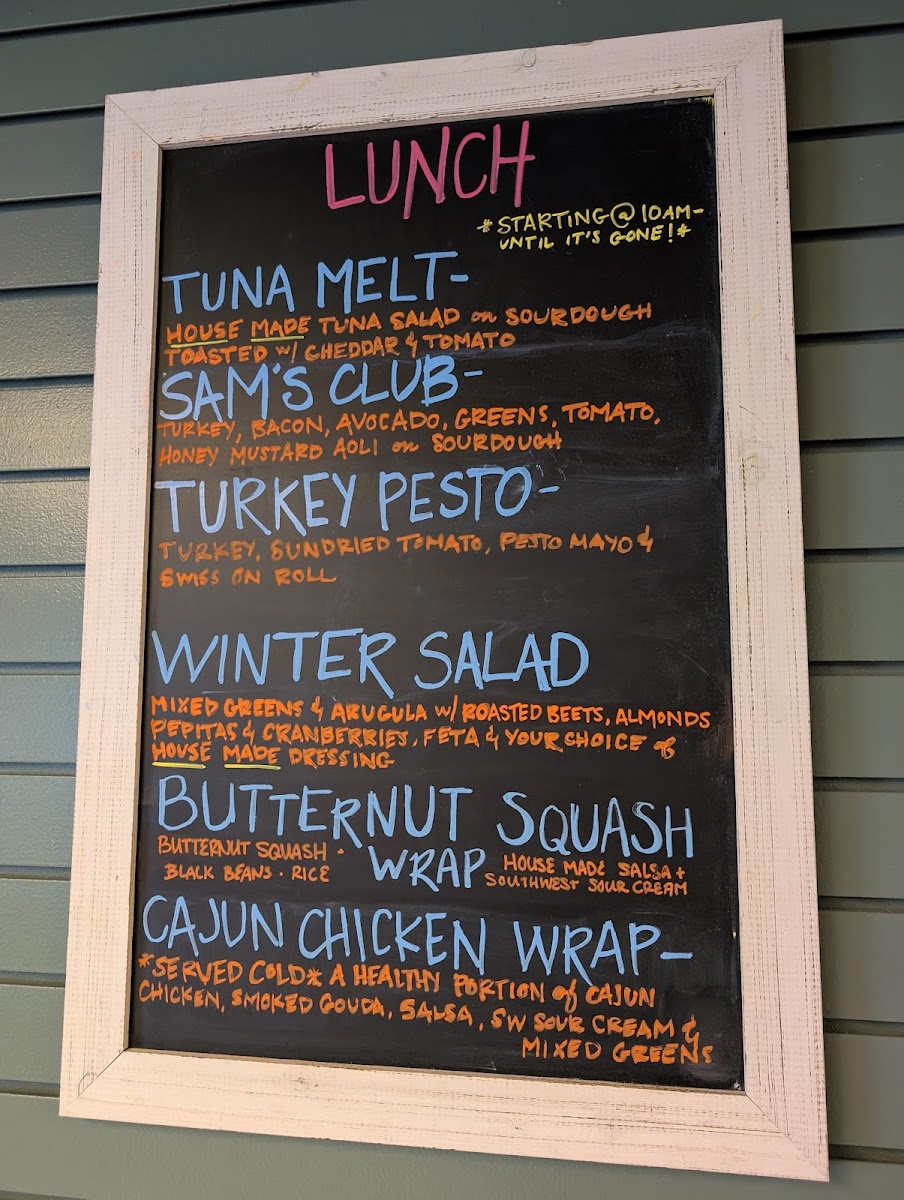 LUNCH
*STARTING@10AM-
UNTIL IT'S GONE!*
TUNA MELT-
HOUSE MADE TUNA SALAD on SOURDOUGH
TOASTED w/ CHEDDAR & TOMATO
SAM'S CLUB-
TURKEY, BACON, AVOCADO, GREENS, TOMATO,
HONEY MUSTARD AOLI on SOURDOUGH
TURKEY PESTO-
TURKEY, SUNDRIED TOMATO, PESTO MAYO &
SWISS ON ROLL
WINTER SALAD
MIXED GREENS & ARUGULA w/ ROASTED BEETS, ALMONDS
PEPITAS & CRANBERRIES, FETA & YOUR CHOICE of
HOUSE MADE DRESSING
BUTTERNUT SQUASH
WRAP
BUTTERNUT SQUASH ·
BLACK BEANS · RICE
HOUSE MADE SALSA +
SOUTHWEST SOUR CREAM
CAJUN CHICKEN WRAP-
*SERVED COLD* A HEALTHY PORTION of CAJUN
CHICKEN, SMOKED GOUDA, SALSA, SW SOUR CREAM &
MIXED GREENS